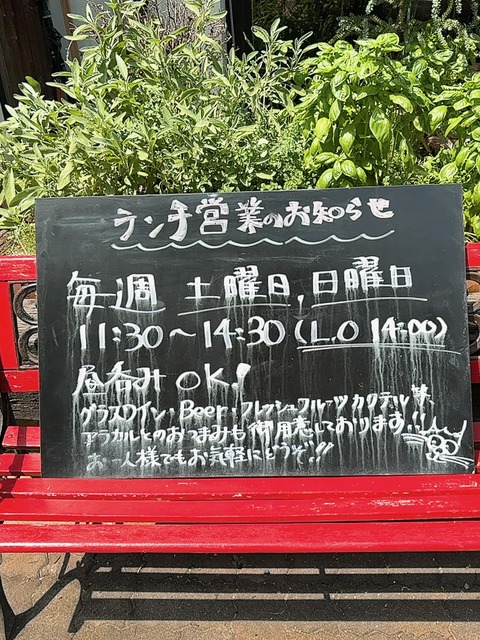 ランチ営業のお知らせ
毎週 土曜日,日曜日
11:30〜14:30(L.O 14:00)
昼呑み OK!
グラスワイン・Beer・フレッシュフルーツカクテル等、
アラカルトのおつまみも御用意しております!!
お一人様でもお気軽にどうぞ!!